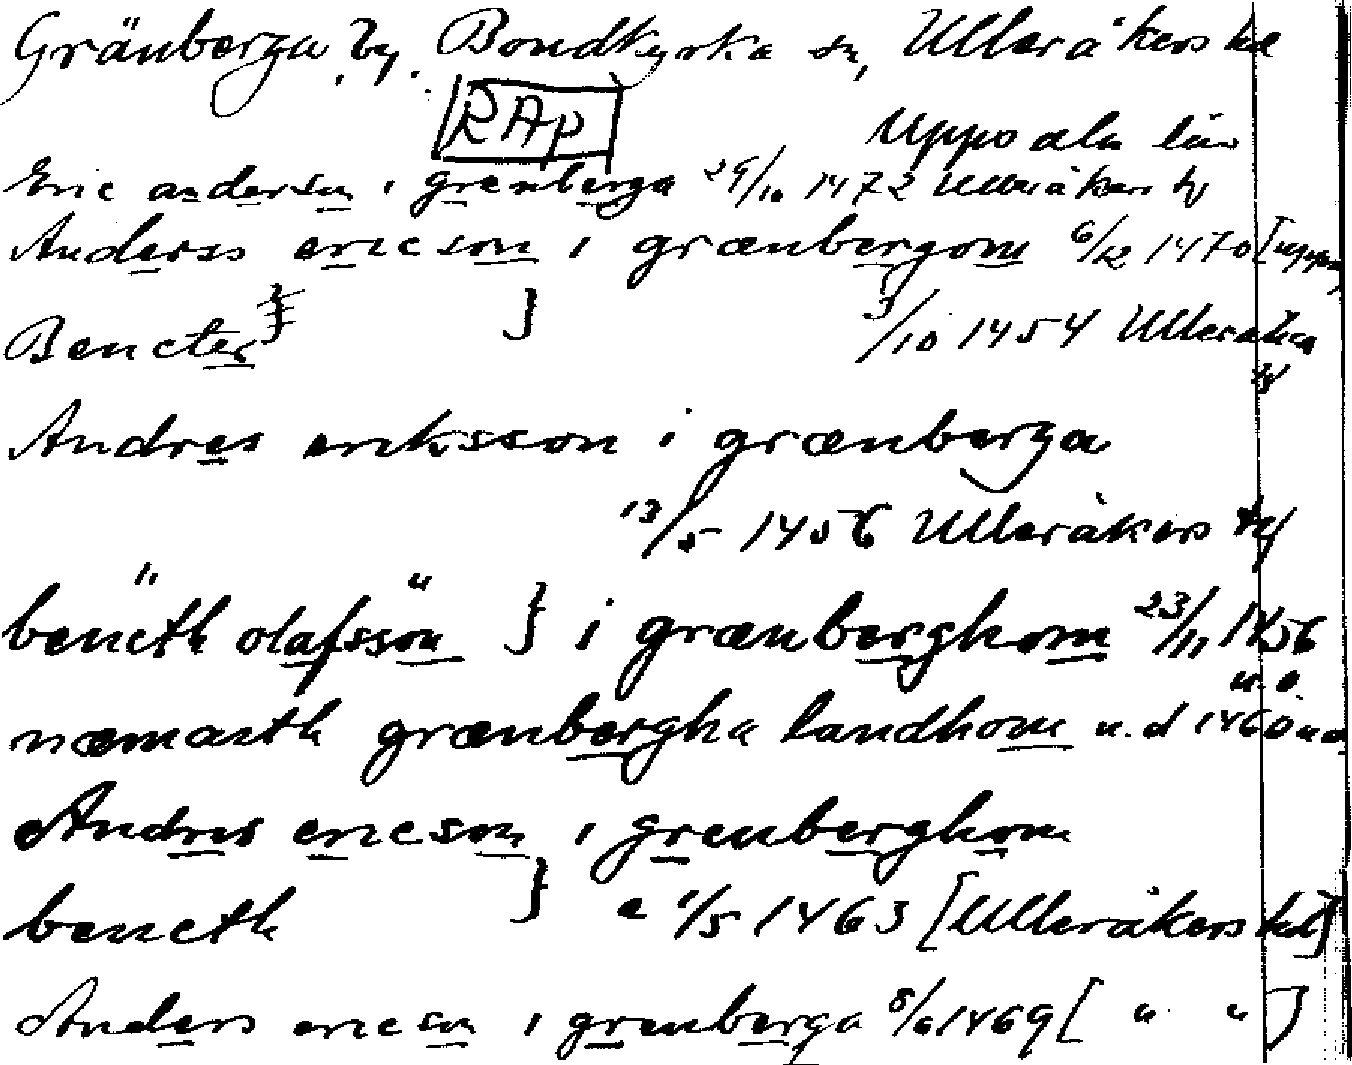 Gränberga, by. Bondkyrka sn, Ulleråkers hd
RAp
Uppsala län
Eric anderson i grenberga 29/10 1472 Ulleråkers tg
Anderss ericson i grænbergom 6/12 1470 [Uppsa
Bencter } } 3/10 1454 Ulleråkers
tg
Andres eriksson i grænberga
13/5 1456 Ulleråkers tg
" "
bencth olafsson } i grænberghom 23/11 1456
u. o.
næmasth grænbergha landhom u. d 1460 u o
Andres ericson i grenberghom
bencth } e 1/5 1463 [Ulleråkers hd]
Anders ericson i grenberga 8/6 1469 [ " " ]